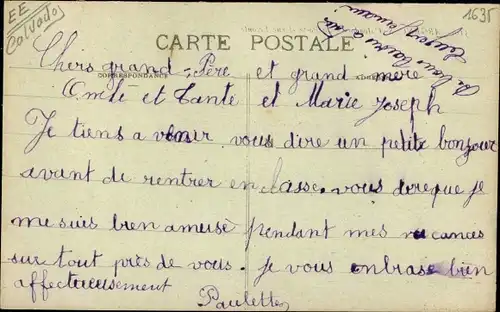 EE
Calvados
1635
CARTE POSTALE
CORRESPONDANCE
Chers grand-Père et grand mère
Oncle et Tante et Marie Joseph
Je tiens a venir vous dire un petit bonjour
avant de rentrer en classe. vous dire que je
me suis bien amusé pendant mes vacances
sur tout près de vous. je vous enbrase bien
affectueusement
Paulette